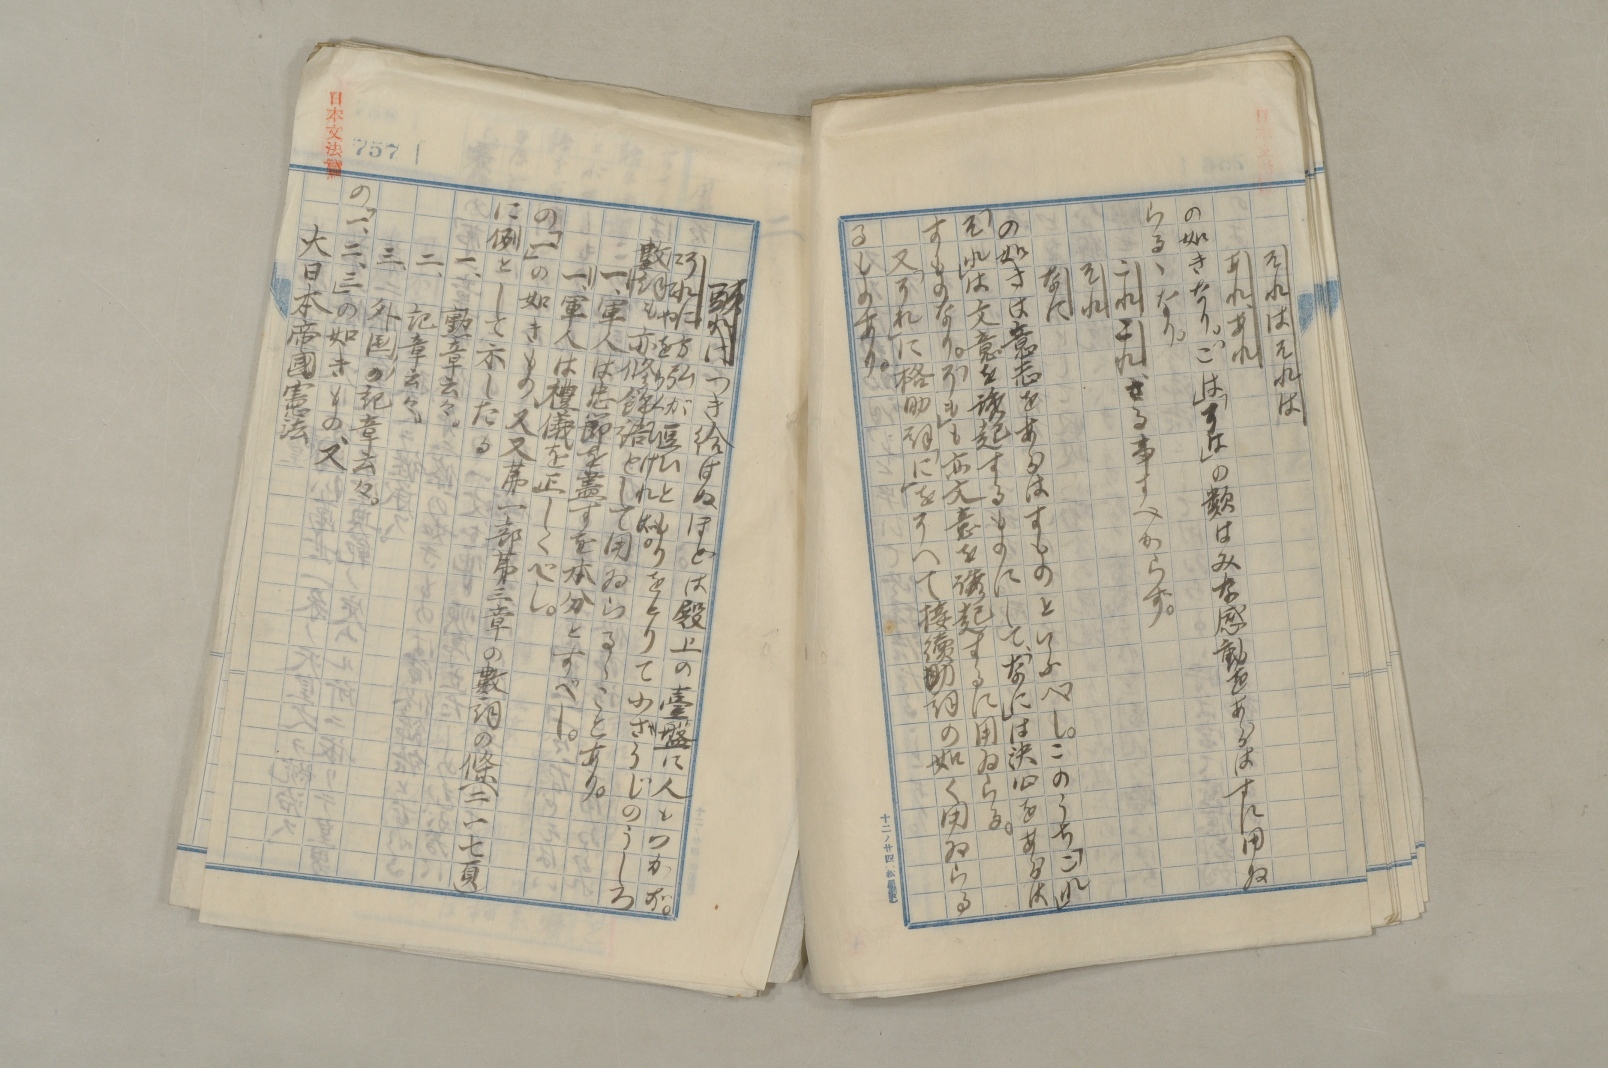 それはそれは
あれ、あれ
の如きなり。「こは」「すは」の類はみな感動をあらはすに用ゐ
らるゝなり。
これ これ
それ
なに
の如きは意志をあらはすものといふべし。このうち「これ」
「それ」は文意を誘起するものにして、「なに」は決心をあらは
すものなり。「それ」も亦文意を誘起するに用ゐらる。
又それに格助詞「に」をそへて接續助詞の如く用ゐらる
るものあり。
十二ノ廿四、松
日本文法論
757
つき給はぬほどは殿上の臺盤に人もつかず。
それに方弘が豆ひともりをとりて小さうじのうしろ
數詞も亦接續語として用ゐらるゝことあり。
一、軍人は忠節を盡すを本分とすべし。
一、軍人は禮儀を正しくべし。
の「一」の如きもの、又又第一部第三章の數詞の條(二一七頁)
に例として示したる
一、勳章云々。
二、記章云々、
三、外国の記章云々。
の「一、二、三」の如きもの、又
大日本帝國憲法